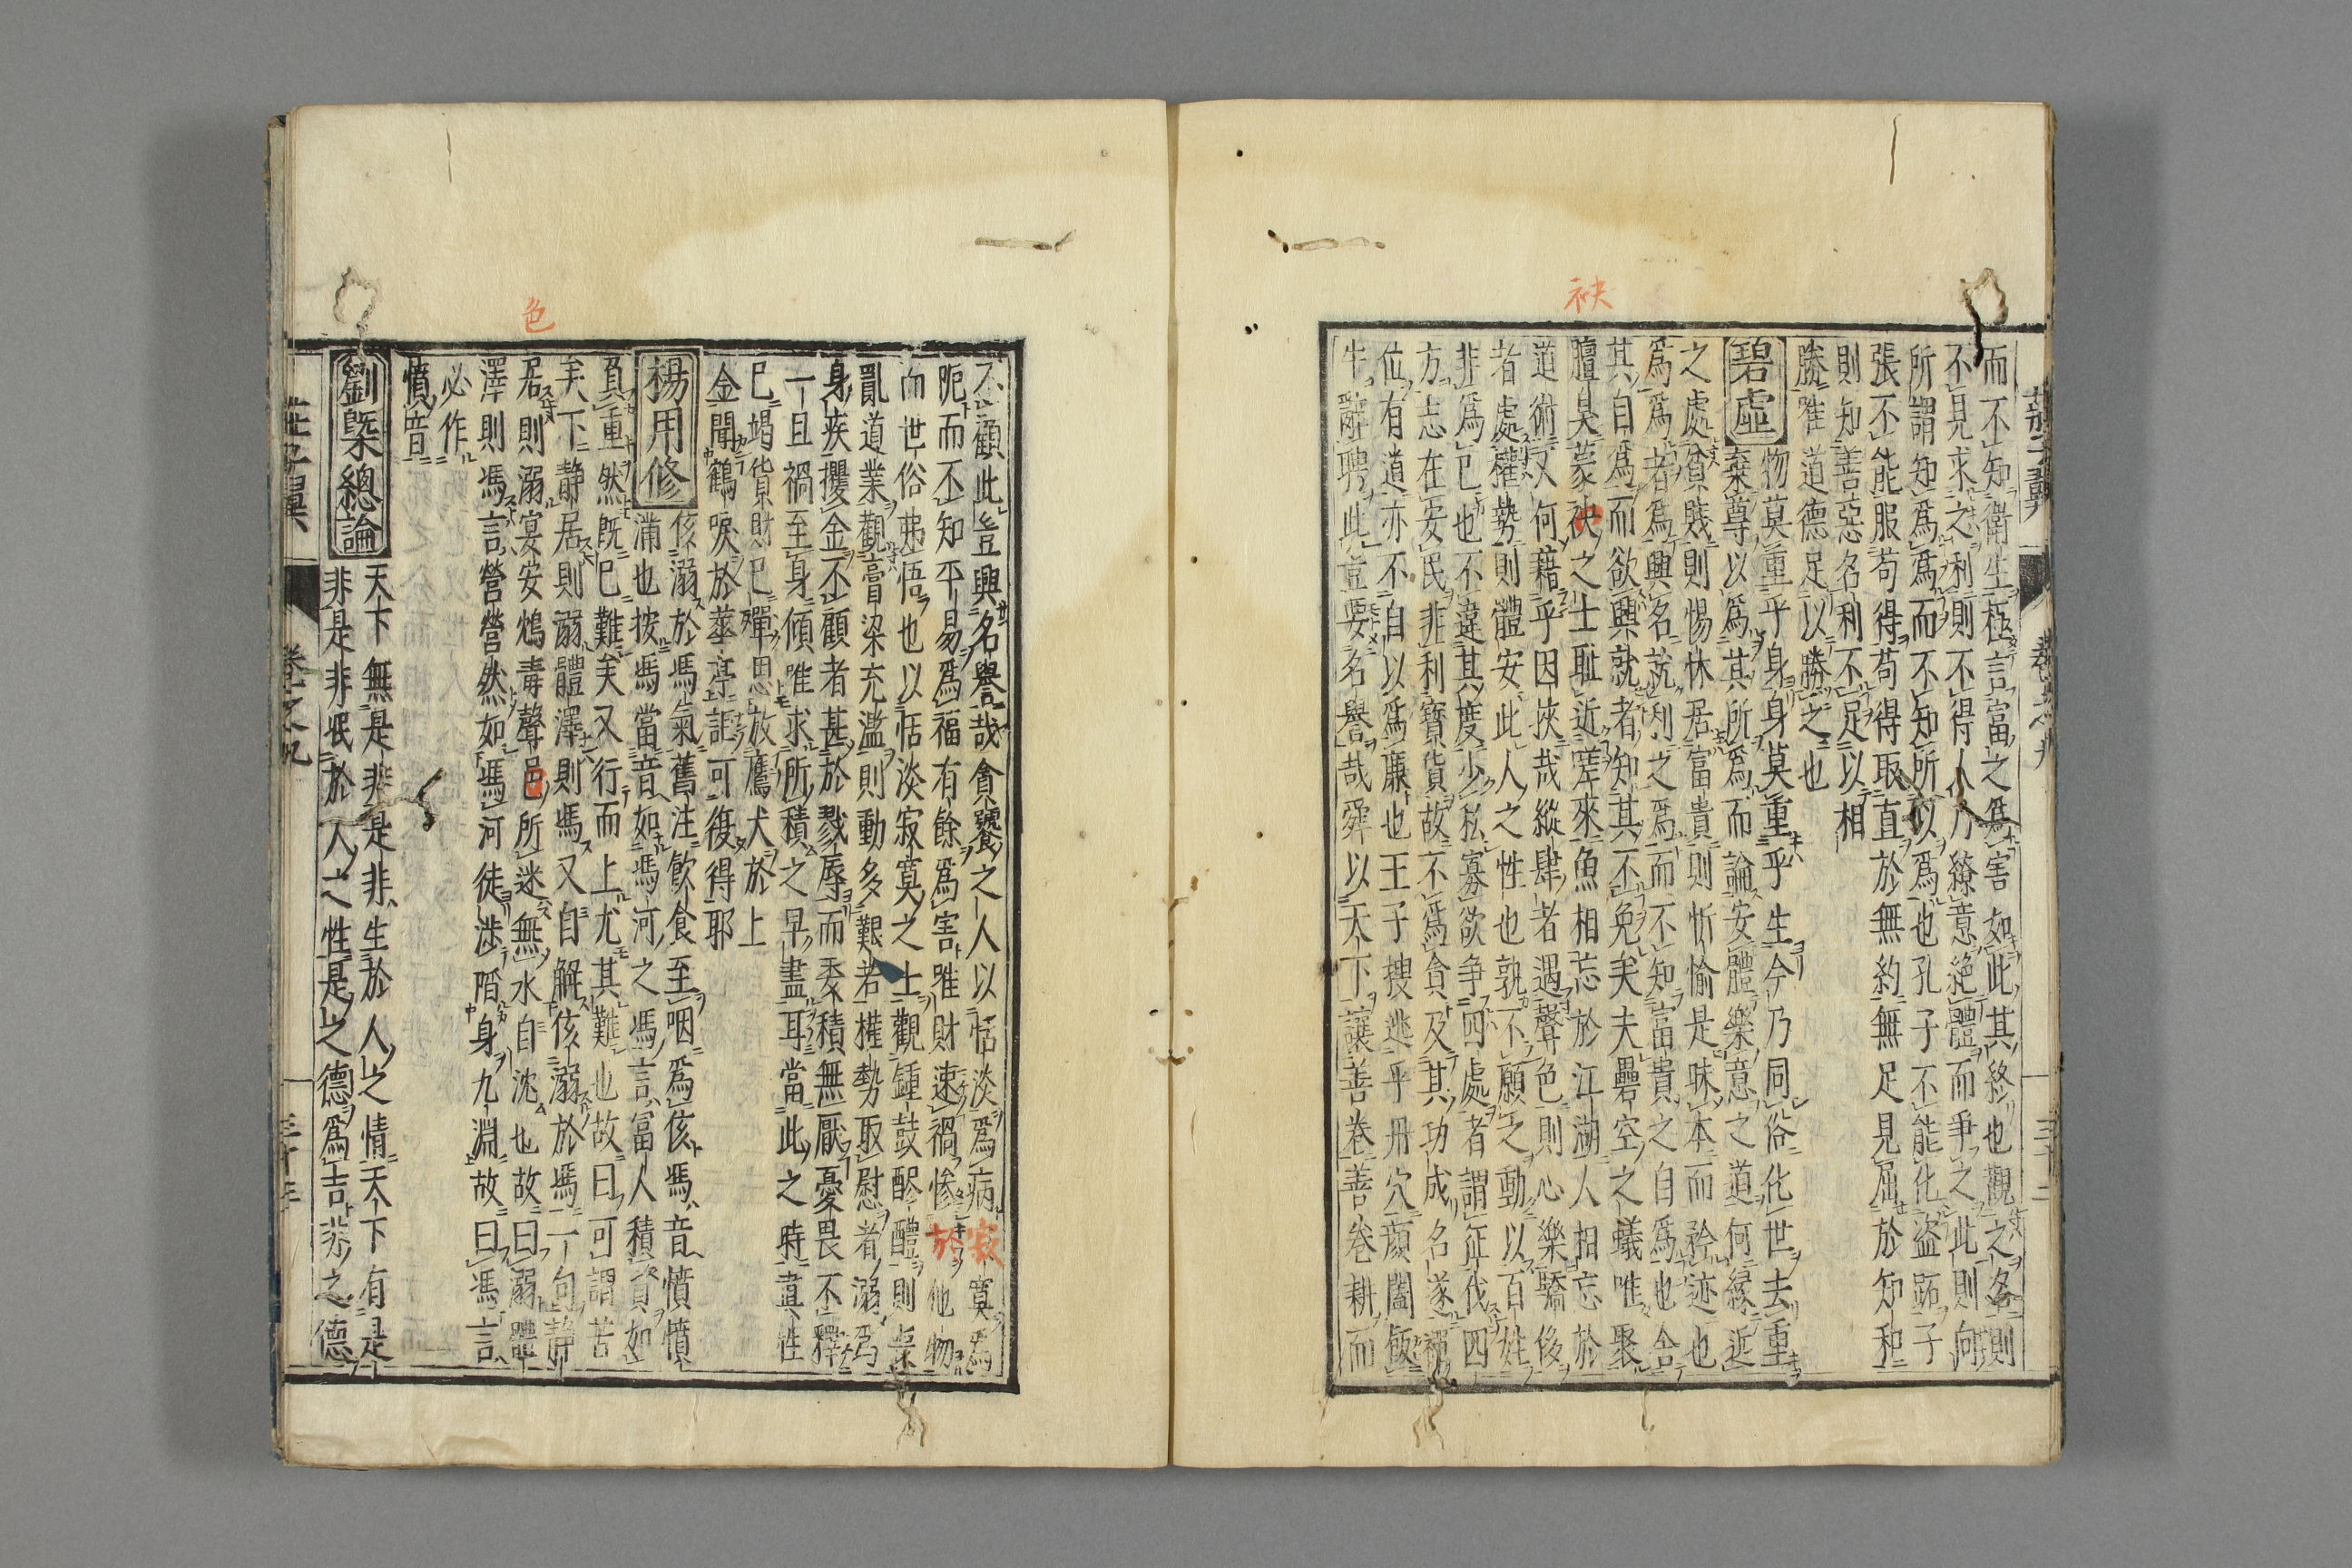 莊子翼 卷之九 三十二
而不知衛生極言富之爲害如此其終也觀之名則
不見求之利則不得人乃繚意絶體而爭之此則向
所謂知爲爲而不知所以爲也孔子不能化盗跖子
張不能服苟得苟得取直於無約無足見屈於知和
則知善惡名利不足以相
勝唯道德足以勝之也
碧虛 物莫重乎身身莫重乎生今乃同俗化世去重
棄尊以爲其所爲而論安體樂意之道何縁近
之處貧賤則惕怵居富貴則忻愉是昧本而矜迹也
爲爲者爲興名就利之爲而不知富貴之自爲也舍
其自爲而欲興就者知其不免矣夫罍空之蟻唯聚
袂
膻臭蒙袂之士耻近嗟來魚相忘於江湖人相忘於
道術又何藉乎因挾哉縱肆者遇聲色則心樂驕侈
者處權勢則體安此人之性也孰不願之動以百姓
非爲己也不違其度少私寡欲争四處者謂征伐四
方志在安民非利寶貨故不爲貪及其功成名遂禪
位有道亦不自以爲廉也王子搜逃乎丹穴顔闔飯
牛辭聘此豈要名譽哉舜以天下讓善卷善卷耕而
不顧此豈興名譽哉貪饕之人以恬淡爲病寂寞爲
阨而不知平易爲福有餘爲害唯財速禍惨於他物
而世俗弗悟也以恬淡寂寞之士觀鍾鼓醪醴則桌
亂道業觀膏梁充滥則動多艱若權勢取慰者溺爲
身疾攫金不顧者甚於戮辱而委積無厭憂畏不釋
一旦禍至身傾唯求所積之早盡耳當此之時眞性
已竭貨財已殫思放鷹犬於上
金聞鶴唳於華亭詎可復得耶
楊用修 侅溺於馮氣舊注飲食至咽爲侅馮音憤憤
滿也按馮當音如馮河之馮言富人積貲如
負重然既已難矣又行而上尤其難也故曰可謂苦
矣下静居則溺體澤則馮又自解侅溺於馮一句静
色
居則溺宴安鴆毒聲色所迷無水自沈也故曰溺體
澤則馮言營營然如馮河徒渉陷身九淵故曰馮言
必作
憤音
劉槩總論 天下無是非是非生於人之情天下有是
非是非泯於人之性是之德爲吉非之德
莊子翼 卷之九 三十三